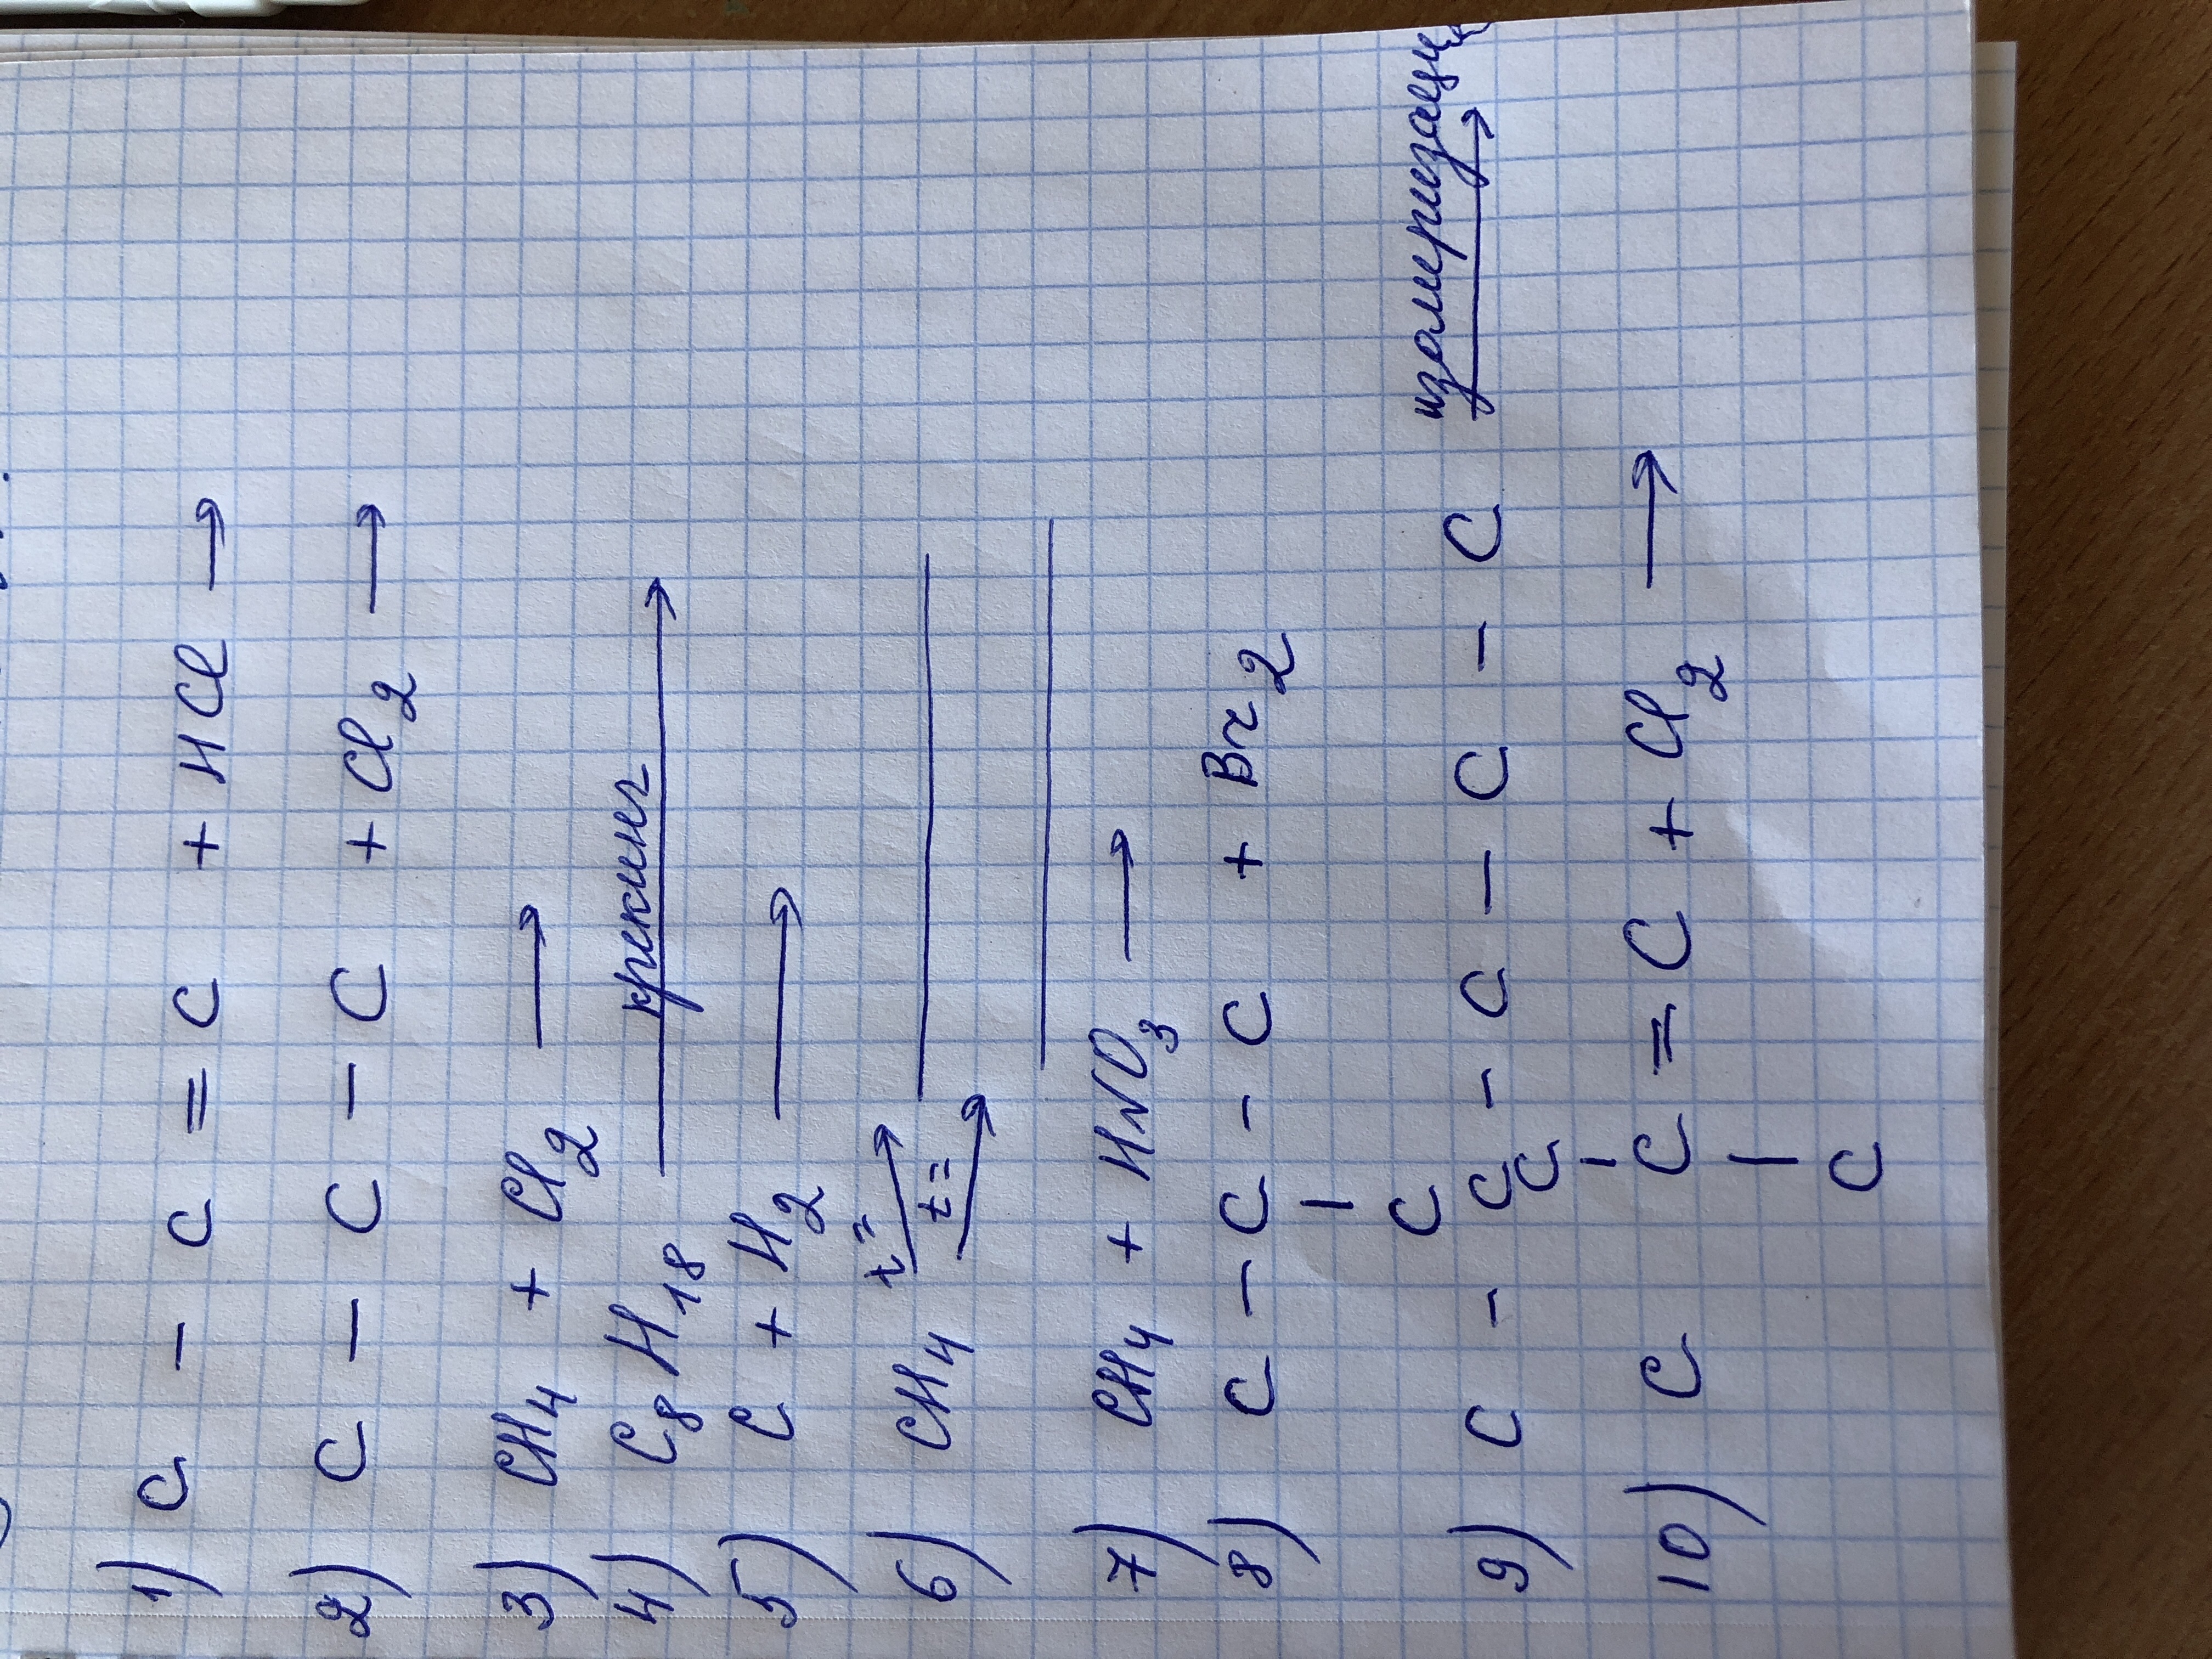 1) C - C = C + HCl →
2) C - C - C + Cl₂ →
3) CH₄ + Cl₂ →
4) C₈H₁₈ крекинг →
5) C + H₂ →
t =
6) CH₄ →
t =
→
7) CH₄ + HNO₃ →
8) C - C - C - C + Br₂
|
C
9) C - C - C - C - C изомеризаци →
C
|
10) C C = C + Cl₂ →
|
C